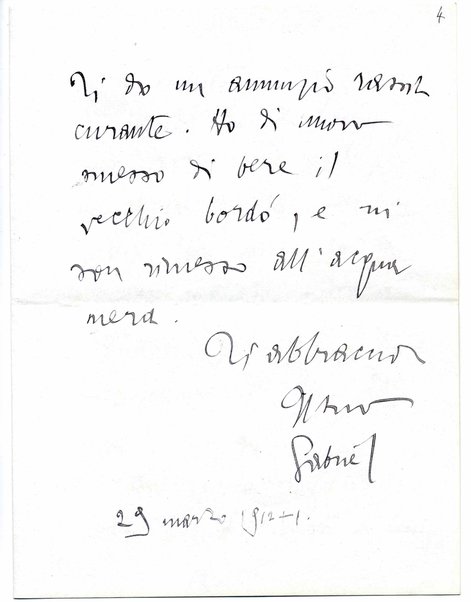 4
Ti do un annunzio rassi
curante. Ho di nuovo
smesso di bere il
vecchio bordó, e mi
son rimesso all'acqua
mera.
Ti abbraccio
Il tuo
Gabriel
29 marzo 1912+1.